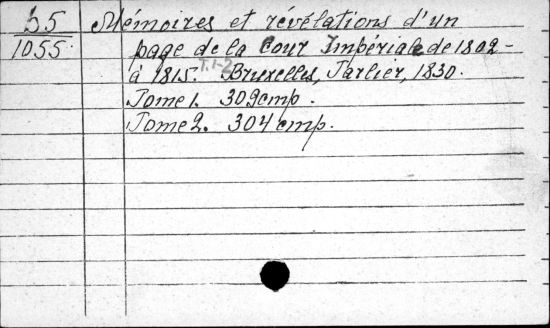 55 Mémoires et révélations d'un
1055 page de la Cour Impériale de 1802-
à 1815. T.1-2 Bruxelles, Tarlier, 1830.
Tome 1. 309 стр.
Tome 2. 304 стр.